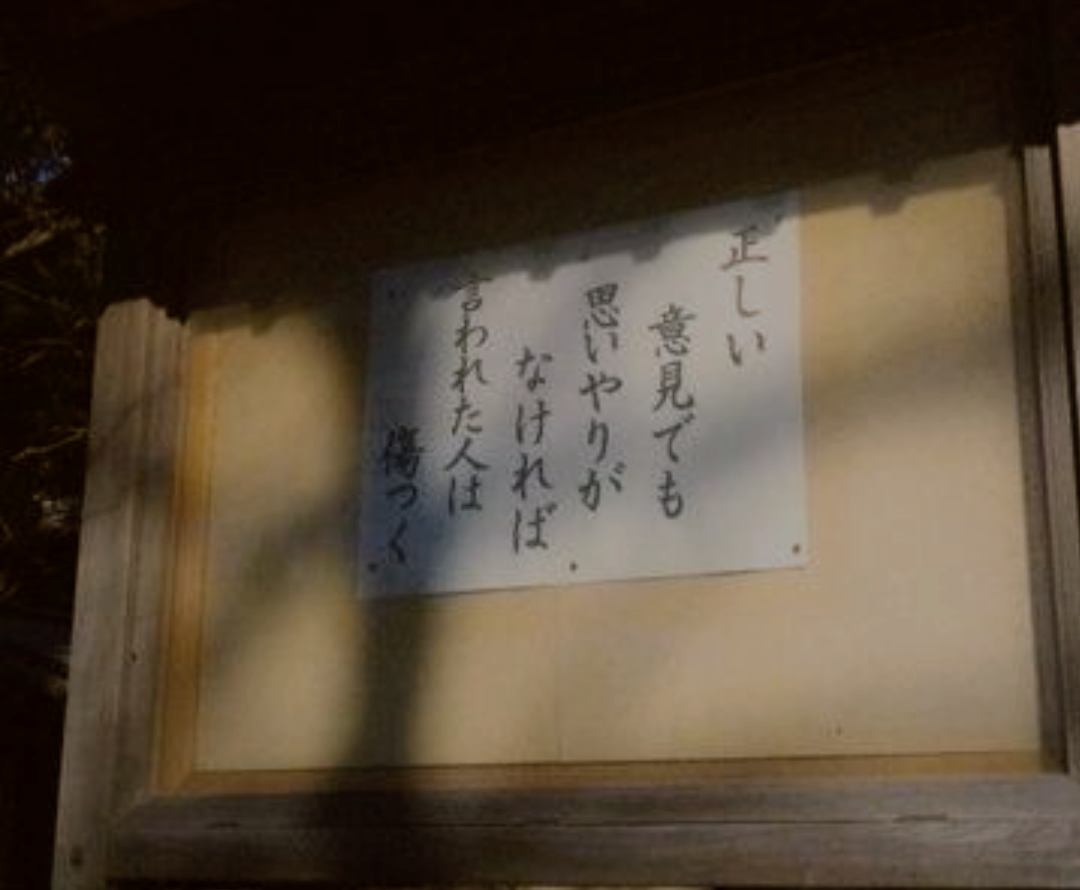 正しい
意見でも
思いやりが
なければ
言われた人は
傷つく